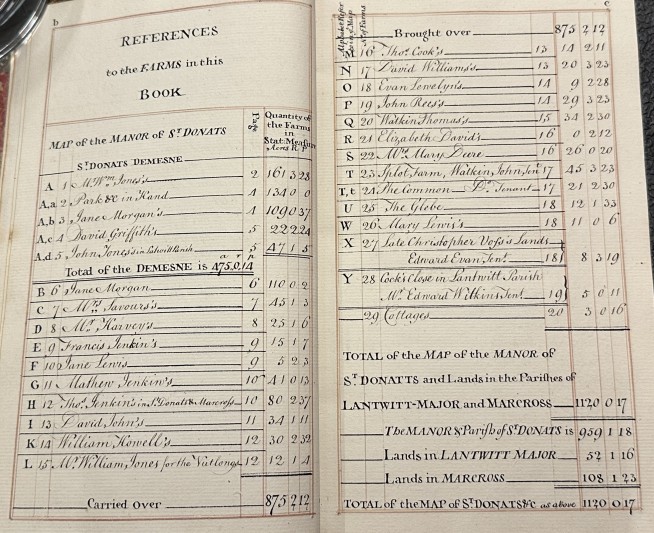 b
REFERENCES
to the FARMS in this
BOOK
MAP of the MANOR of ST DONATS
Page
Quantity of the Farms in Stat: Measure
Acres R. P.
ST DONATS DEMESNE
A 1 Mr. Wm. Jones's 2 161 3 28
A,a 2 Park &c in Hand 4 134 0 0
A,b 3 Jane Morgan's 4 109 0 37
A,c 4 David Griffith's 5 22 2 24
A,d 5 John Jones's in Lantwitt Parish 5 47 1 5
a r p
Total of the DEMESNE is 475.0.14
B 6 Jane Morgan 6 110 0 2
C 7 Mrs. Savours's 7 45 1 3
D 8 Mr. Harvey's 8 25 1 6
E 9 Francis Jenkin's 9 15 1 7
F 10 Jane Lewis 9 5 2 3
G 11 Mathew Jenkin's 10 41 0 13
H 12 Thos. Jenkins in St. Donats & Marcross 10 80 2 37
I 13 David John's 11 34 1 11
K 14 William Howell's 12 30 2 32
L 15 Mr. William Jones for the Vatlongs 12 12 1 4
Carried Over 875 2 12
c
Brought over 875 2 12
M 16 Thos. Cook's 13 14 2 11
N 17 David Williams's 13 20 3 23
O 18 Evan Lewelyn's 14 9 2 28
P 19 John Rees's 14 29 3 23
Q 20 Watkin Thomas's 15 34 2 30
R 21 Elizabeth David's 16 0 2 12
S 22 Mrs. Mary Dere 16 26 0 20
T 23 Splot Farm, Watkin John, Tent. 17 45 3 23
T,t 24 The Common Do. Tenant 17 21 2 30
U 25 The Globe 18 12 1 33
W 26 Mary Lewis's 18 11 0 6
X 27 Late Christopher Voss's Lands
Edward Evan Tent. 18 8 3 19
Y 28 Cook's Close in Lantwitt Parish
Mr. Edward Wilkins Tent. 19 5 0 11
29 Cottages 20 3 0 16
TOTAL of the MAP of the MANOR of
ST DONATTS and Lands in the Parishes of
LANTWITT-MAJOR and MARCROSS 1120 0 17
The MANOR & Parish of St. DONATS is 959 1 18
Lands in LANTWITT MAJOR 52 1 16
Lands in MARCROSS 108 1 23
TOTAL of the MAP of ST. DONATS &c as above 1120 0 17